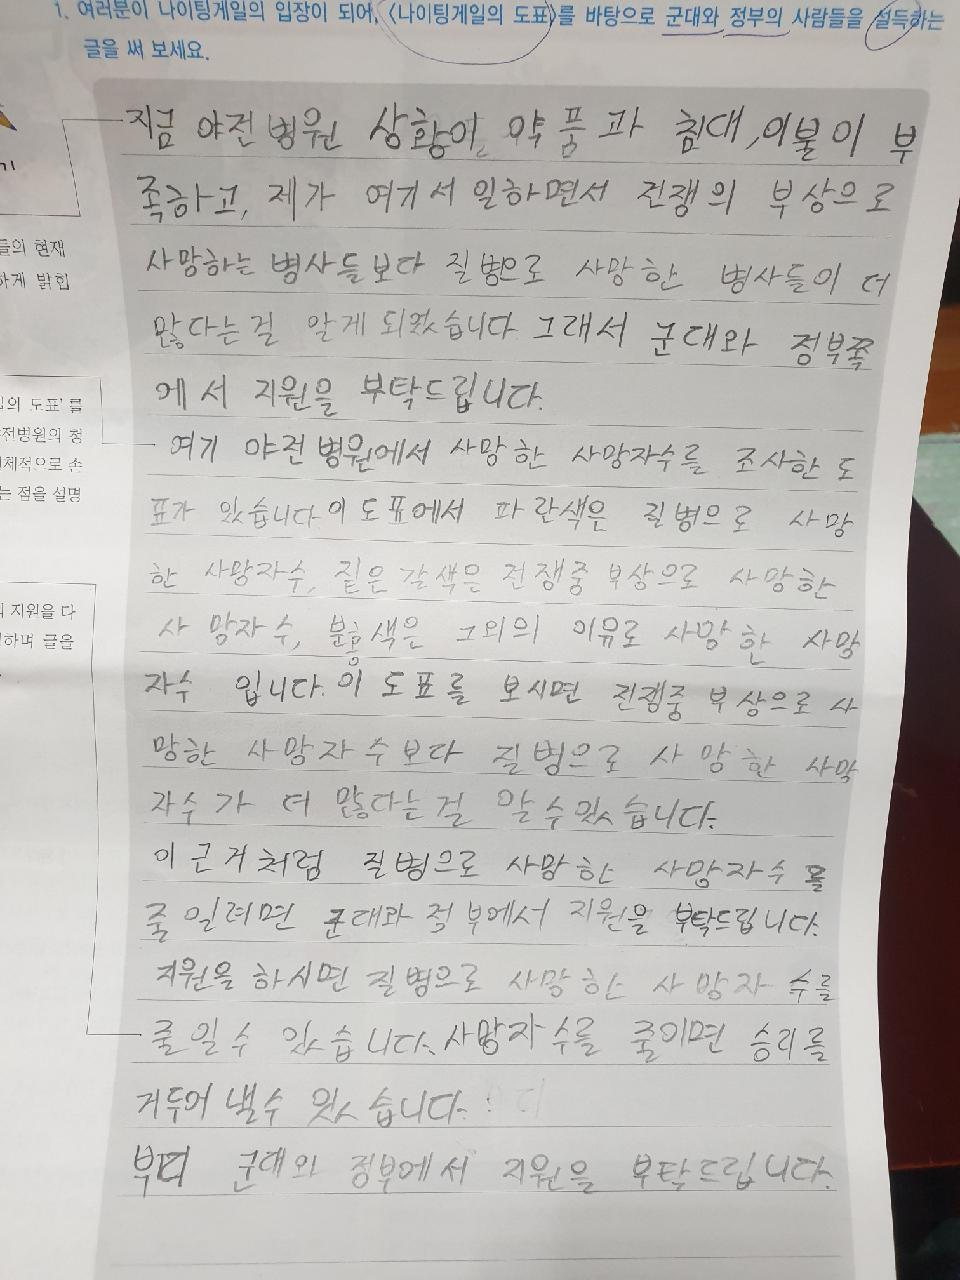 1. 여러분이 나이팅게일의 입장이 되어, <나이팅게일의 도표>를 바탕으로 군대와 정부의 사람들을 설득하는
글을 써 보세요.
지금 야전병원 상황이 약품과 침대, 이불이 부
족하고, 제가 여기서 일하면서 전쟁의 부상으로
사망하는 병사들보다 질병으로 사망한 병사들이 더
많다는걸 알게 되었습니다 그래서 군대와 정부쪽
에서 지원을 부탁드립니다.
여기 야전병원에서 사망한 사망자수를 조사한 도
표가 있습니다. 이 도표에서 파란색은 질병으로 사망
한 사망자수, 짙은 갈색은 전쟁중 부상으로 사망한
사망자수, 분홍색은 그외의 이유로 사망한 사망
자수 입니다. 이 도표를 보시면 전쟁중 부상으로 사
망한 사망자수보다 질병으로 사망한 사망
자수가 더 많다는걸 알수있습니다.
이 근거처럼 질병으로 사망한 사망자수를
줄일려면 군대와 정부에서 지원을 부탁드립니다.
지원을 하시면 질병으로 사망한 사망자 수를
줄일수 있습니다. 사망자 수를 줄이면 승리를
거두어 낼수 있습니다.
부디 군대와 정부에서 지원을 부탁드립니다.
기
들의 현재
하게 밝힙
일의 도표'를
야전병원의 청
체적으로 손
는 점을 설명
지원을 다
하며 글을